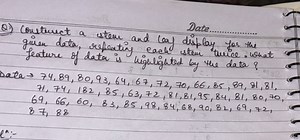 Date..............
Q) Construct a stem and leaf display for the
given data, repeating each stem twice. What
feature of data is highlighted by the display ?
data → 74, 89, 80, 93, 64, 67, 72, 70, 66, 85, 89, 81, 81,
71, 74, 182, 85, 63, 72, 81, 81, 95, 84, 81, 80, 70,
69, 66, 60, 83, 85, 98, 84, 68, 90, 82, 69, 72,
87, 88